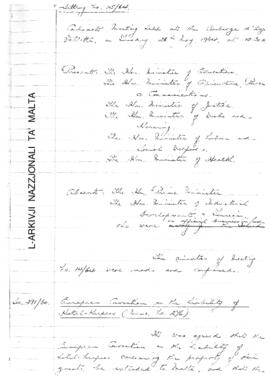 Sitting No. 15/64.
Cabinet Meeting held at the Auberge d'
on 26th May 1964, at 10.30
Present: The Hon. Minister of Education.
The Hon. Minister of Agriculture, Power
& Communications.
The Hon. Minister of Justice.
The Hon. Minister of Works and
Housing.
The Hon. Minister of Labour and
Social Welfare.
The Hon. Minister of Health.
Absent: The Hon. Prime Minister
The Hon. Minister of Industrial
Development & Tourism,
who were
The minutes of Meeting
No. 14/64 were read and confirmed.
European Convention on the Liability of
Hotel-Keepers
It was agreed that the
European Convention on the Liability of
Hotel-keepers concerning the property of their
guests, be extended to Malta, and that the
L-ARKIVJI NAZZJONALI TA' MALTA